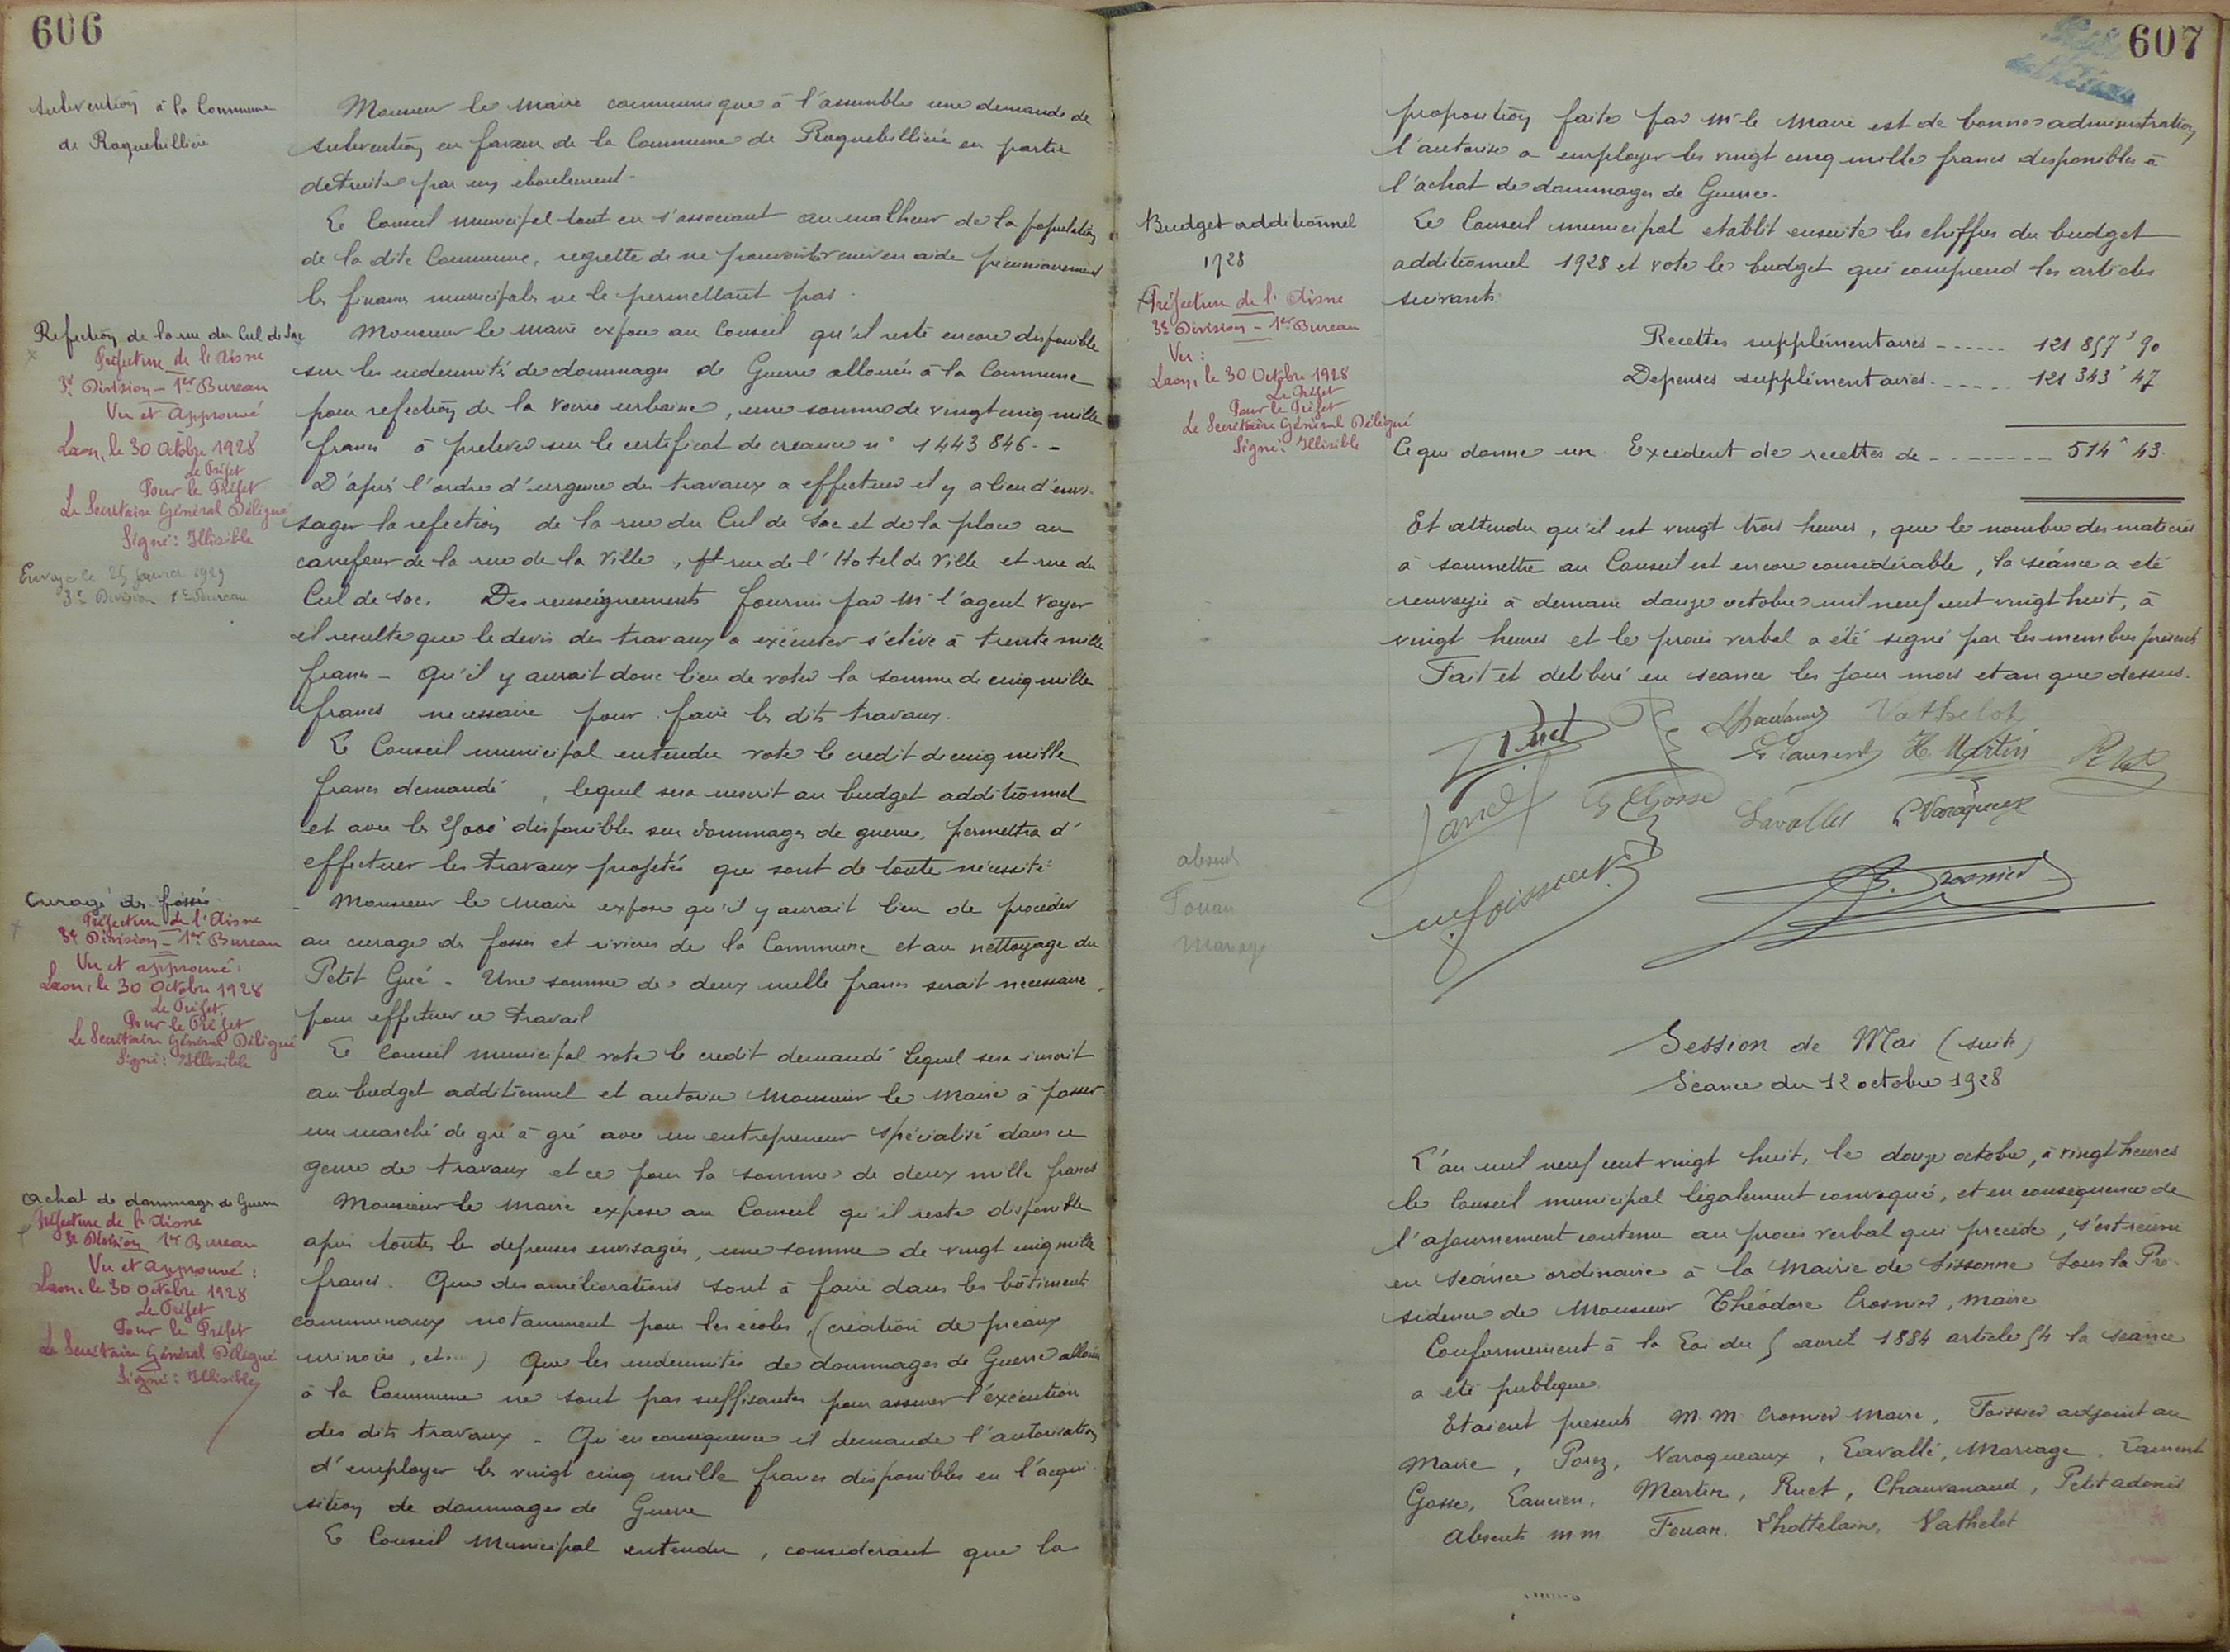 606
Subvention à la Commune
de Roquebillière
Monsieur le Maire communique à l'assemblée une demande de
subvention en faveur de la Commune de Roquebillière en partie
detruite par un éboulement.
Le Conseil municipal tout en s'associant au malheur de la population
de la dite Commune, regrette de ne pouvoir venir en aide pécuniairement
les finances municipales ne le permettant pas.
Refection de la rue du Cul de Sac
Préfecture de l'Aisne
3e Division - 1er Bureau
Vu et Approuvé
Laon, le 30 Octobre 1928
Le Préfet
Pour le Préfet
Le Secrétaire Général Délégué
Signé : Illisible
Envoyé le 25 janvier 1929
3e Division 1er Bureau
Monsieur le Maire expose au Conseil qu'il reste encore disponible
sur les indemnités de dommages de Guerre allouées à la Commune
pour refection de la voirie urbaine, une somme de vingt cinq mille
francs à prelever sur le certificat de creance n° 1443846. -
D'après l'ordre d'urgence des travaux a effectuer il y a lieu d'envi-
sager la refection de la rue du Cul de Sac et de la place au
carrefour de la rue de la Ville, rue de l'Hotel de Ville et rue du
Cul de Sac. Des renseignements fournis par Mr l'agent Voyer
il resulte que le devis des travaux a exécuter s'élève à trente mille
francs - Qu'il y aurait donc lieu de voter la somme de cinq mille
francs necessaire pour faire les dits travaux.
Le Conseil municipal entendu vote le credit de cinq mille
francs demandé, lequel sera inscrit au budget additionnel
et avec les 25000f disponibles sur dommages de guerre, permettra d'
effectuer les travaux projetés qui sont de toute nécessité.
Curage des fossés
Préfecture de l'Aisne
3e Division - 1er Bureau
Vu et approuvé :
Laon, le 30 Octobre 1928
Le Préfet,
Pour le Préfet
Le Secrétaire Général Délégué
Signé : Illisible
- Monsieur le Maire expose qu'il y aurait lieu de procéder
au curage des fossés et rivieres de la Commune et au nettoyage du
Petit Gué - Une somme de deux mille francs serait necessaire
pour effectuer ce travail
Le Conseil municipal vote le credit demandé lequel sera inscrit
au budget additionnel et autorise Monsieur le Maire à passer
un marché de gré à gré avec un entrepreneur spécialisé dans ce
genre de travaux et ce pour la somme de deux mille francs
Achat de dommages de Guerre
Préfecture de l'Aisne
3e Division 1er Bureau
Vu et approuvé :
Laon, le 30 Octobre 1928
Le Préfet
Pour le Préfet
Le Secrétaire Général Délégué
Signé : Illisible
Monsieur le Maire expose au Conseil qu'il reste disponible
après toutes les depenses envisagées, une somme de vingt cinq mille
francs. Que des améliorations sont à faire dans les bâtiments
communaux notamment pour les écoles, (création de préaux
urinoirs, etc...) Que les indemnités de dommages de Guerre allouées
à la Commune ne sont pas suffisantes pour assurer l'exécution
des dits travaux - Qu'en consequence il demande l'autorisation
d'employer les vingt cinq mille francs disponibles en l'acqui-
sition de dommages de Guerre
Le Conseil Municipal entendu, considerant que la
607
proposition faite par Mr le Maire est de bonne administration
l'autorise a employer les vingt cinq mille francs disponibles à
l'achat de dommages de Guerre.
Budget additionnel
1928
Préfecture de l'Aisne
3e Division - 1er Bureau
Vu :
Laon, le 30 Octobre 1928
Le Préfet
Pour le Préfet
Le Secrétaire Général Délégué
Signé : Illisible
Le Conseil municipal etablit ensuite les chiffres du budget
additionnel 1928 et vote le budget qui comprend les articles
suivants
Recettes supplémentaires ------ 121 857f 90
Depenses supplémentaires ------ 121 343f 47
Ce qui donne un Excedent de recettes de -------- 514f 43
Et attendu qu'il est vingt trois heures, que le nombre des matieres
à soumettre au Conseil est encore considérable, la séance a eté
renvoyée à demain douze octobre mil neuf cent vingt huit, à
vingt heures et le procès verbal a été signé par les membres présents
Fait et deliberé en seance les jour mois et an que dessus.
Ruet
Vathelot
G Laurent
H. Martin
G Gosse
Lavallée
Varoqueaux
absents
Fouan
Mariage
Crosnier
Session de Mai (suite)
Séance du 12 octobre 1928
L'an mil neuf cent vingt huit, le douze octobre, à vingt heures
le Conseil municipal légalement convoqué, et en conséquence de
l'ajournement contenu au procès verbal qui precède, s'est réuni
en séance ordinaire à la Mairie de Sissonne sous la Pré-
sidence de Monsieur Théodore Crosnier, Maire
Conformement à la Loi du 5 avril 1884 article 54 la seance
a été publique.
Etaient présents M.M. Crosnier Maire, Foissier adjoint au
Maire, Porez, Varoqueaux, Lavallé, Mariage, Laurent
Gosse, Lancien, Martin, Ruet, Chauvanaud, Petit adonis
Absents m m Fouan, Lhottelain, Vathelot